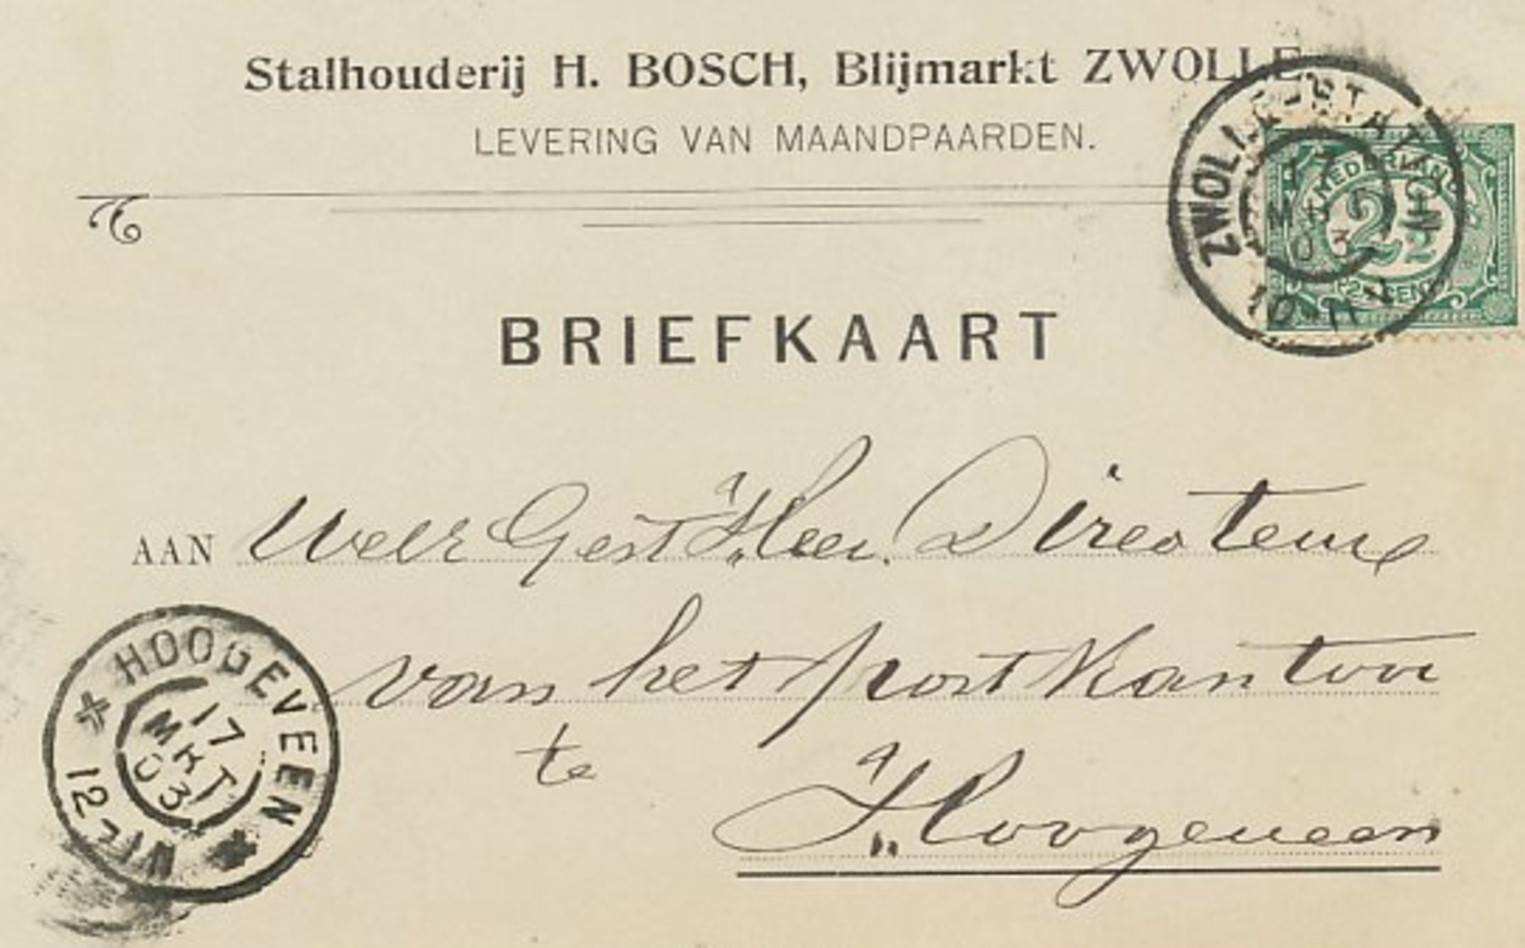 Stalhouderij H. BOSCH, Blijmarkt ZWOLLE.
LEVERING VAN MAANDPAARDEN.
ZWOLLE-STATION
17
MRT
03
10-11 V
NEDERLAND
2½
CENT
BRIEFKAART
AAN Welr Gest Heer. Directeur
van het postkantoor
te
Hoogeveen
HOOGEVEEN
17
MRT
03
12-1N